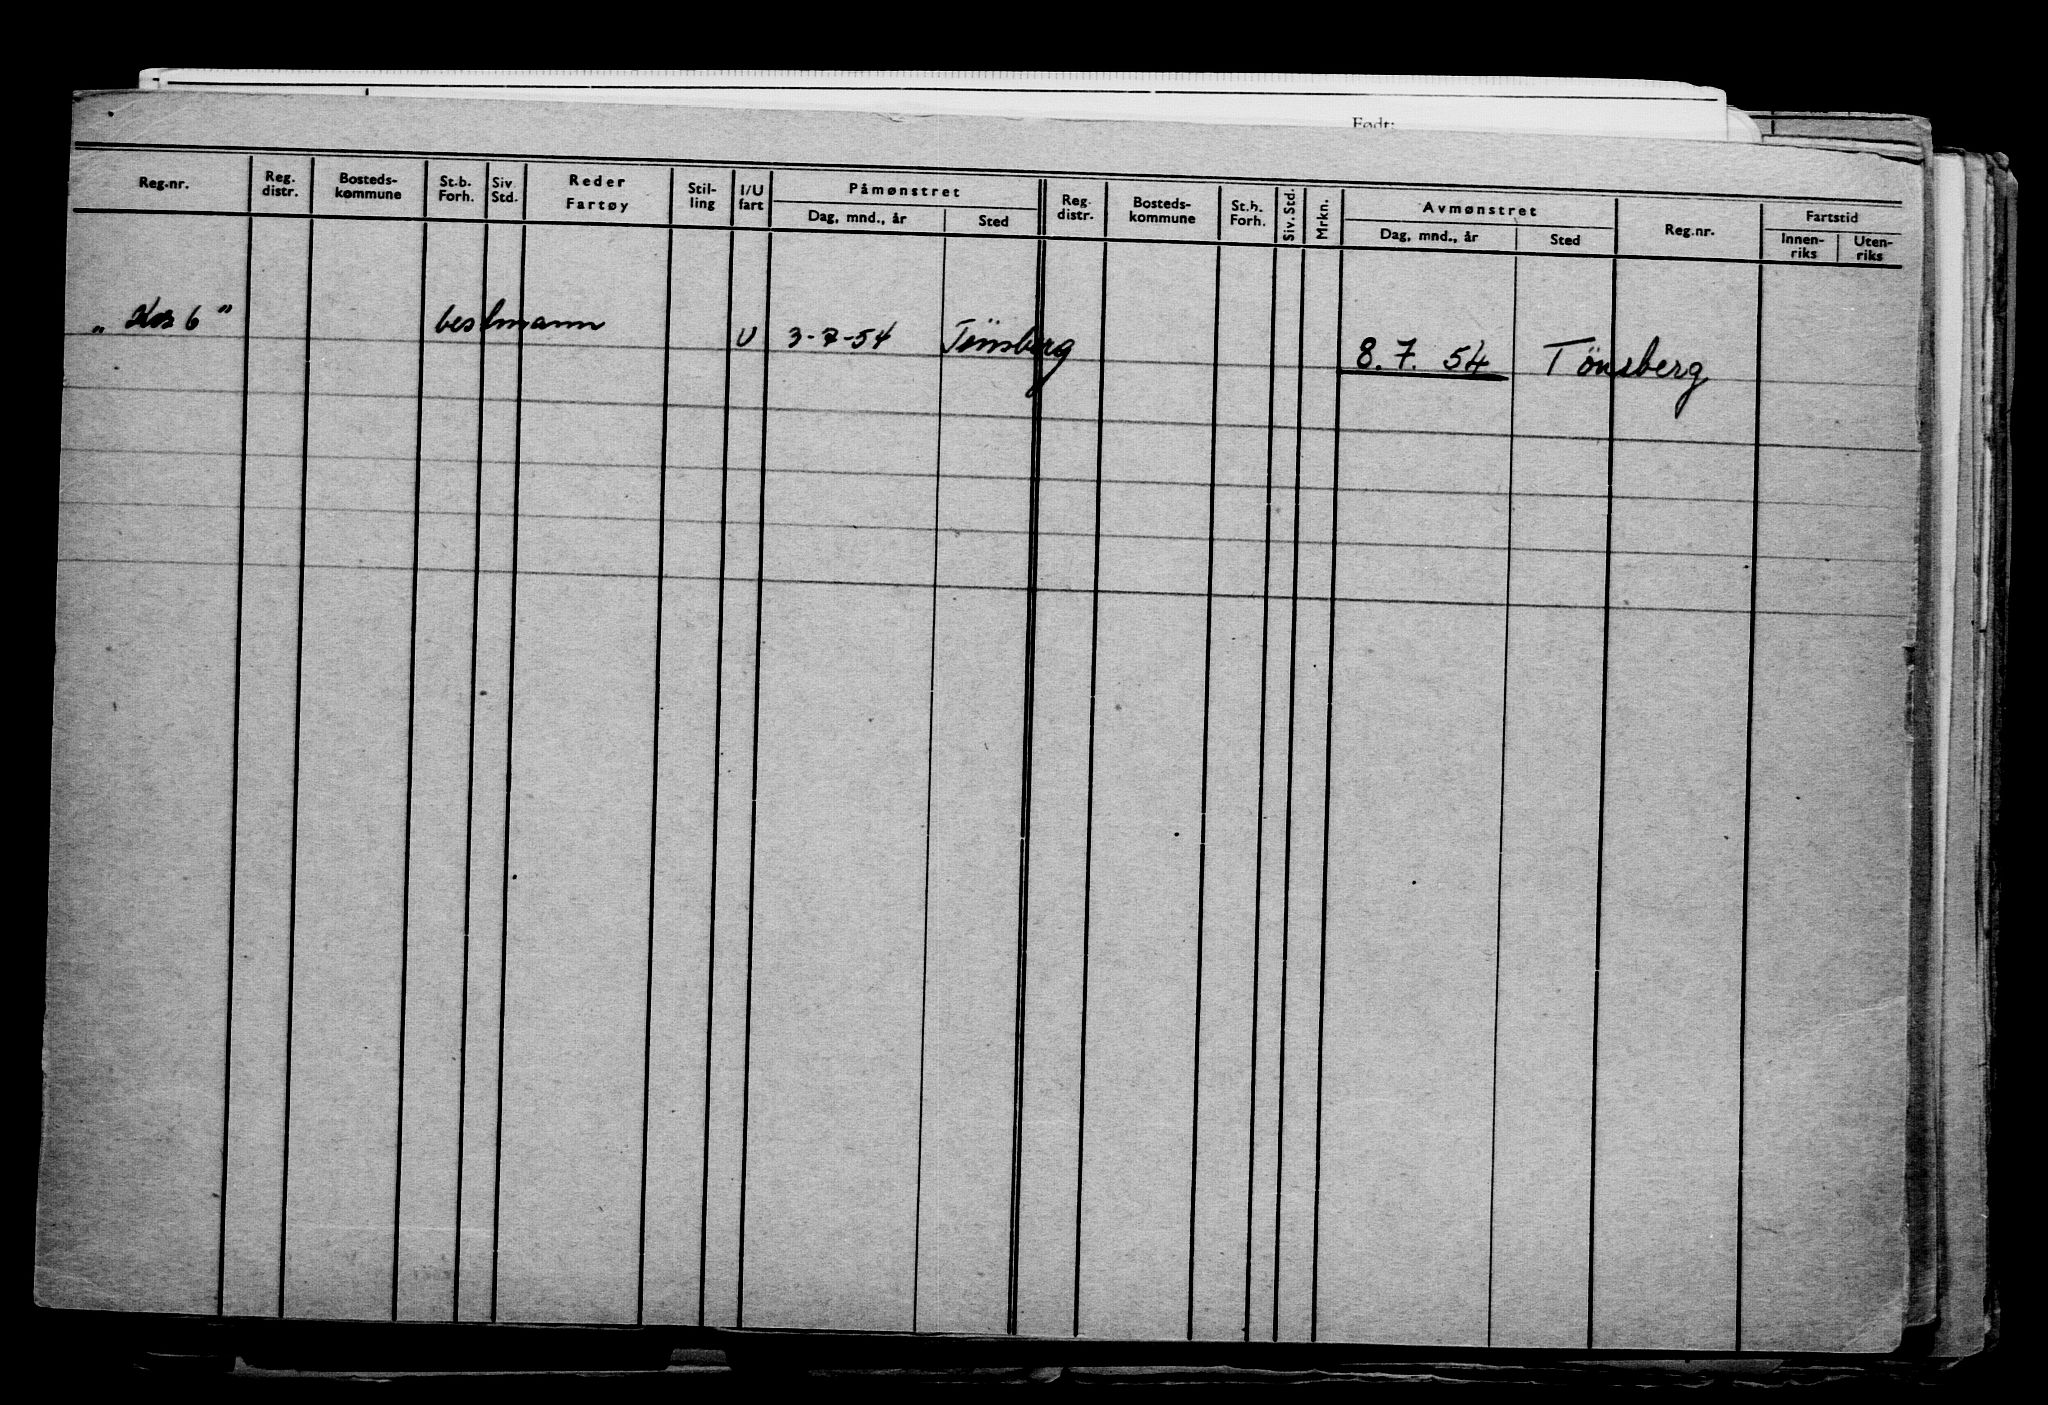 Født:
Reg.nr. Reg. distr. Bosteds-kommune St.b. Forh. Siv. Std. Reder Fartøy Stil-ling I/U fart Påmønstret Dag, mnd., år Sted Reg. distr. Bosteds-kommune St.b. Forh. Siv. Std. Mrkn. Avmønstret Dag, mnd., år Sted Reg.nr. Fartstid Innen-riks Uten-riks
„ Kos 6 " bestmann U 3-7-54 Tönsberg 8.7.54 Tönsberg